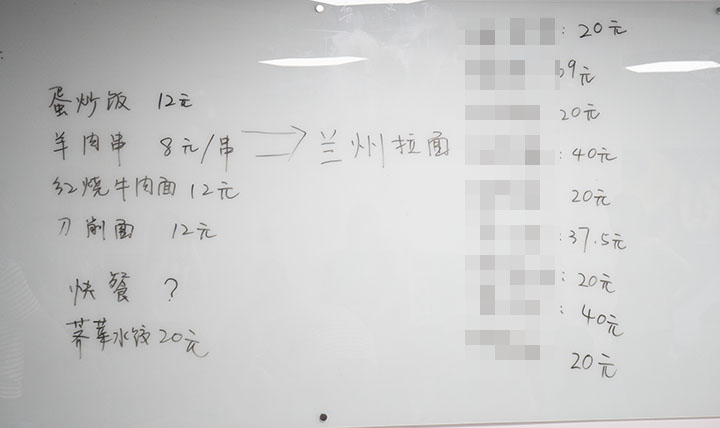 蛋炒饭 12元
羊肉串 8元/串 → 兰州拉面
红烧牛肉面 12元
刀削面 12元
快餐 ?
荠菜水饺 20元
: 20元
69元
20元
: 40元
20元
: 37.5元
: 20元
: 40元
20元